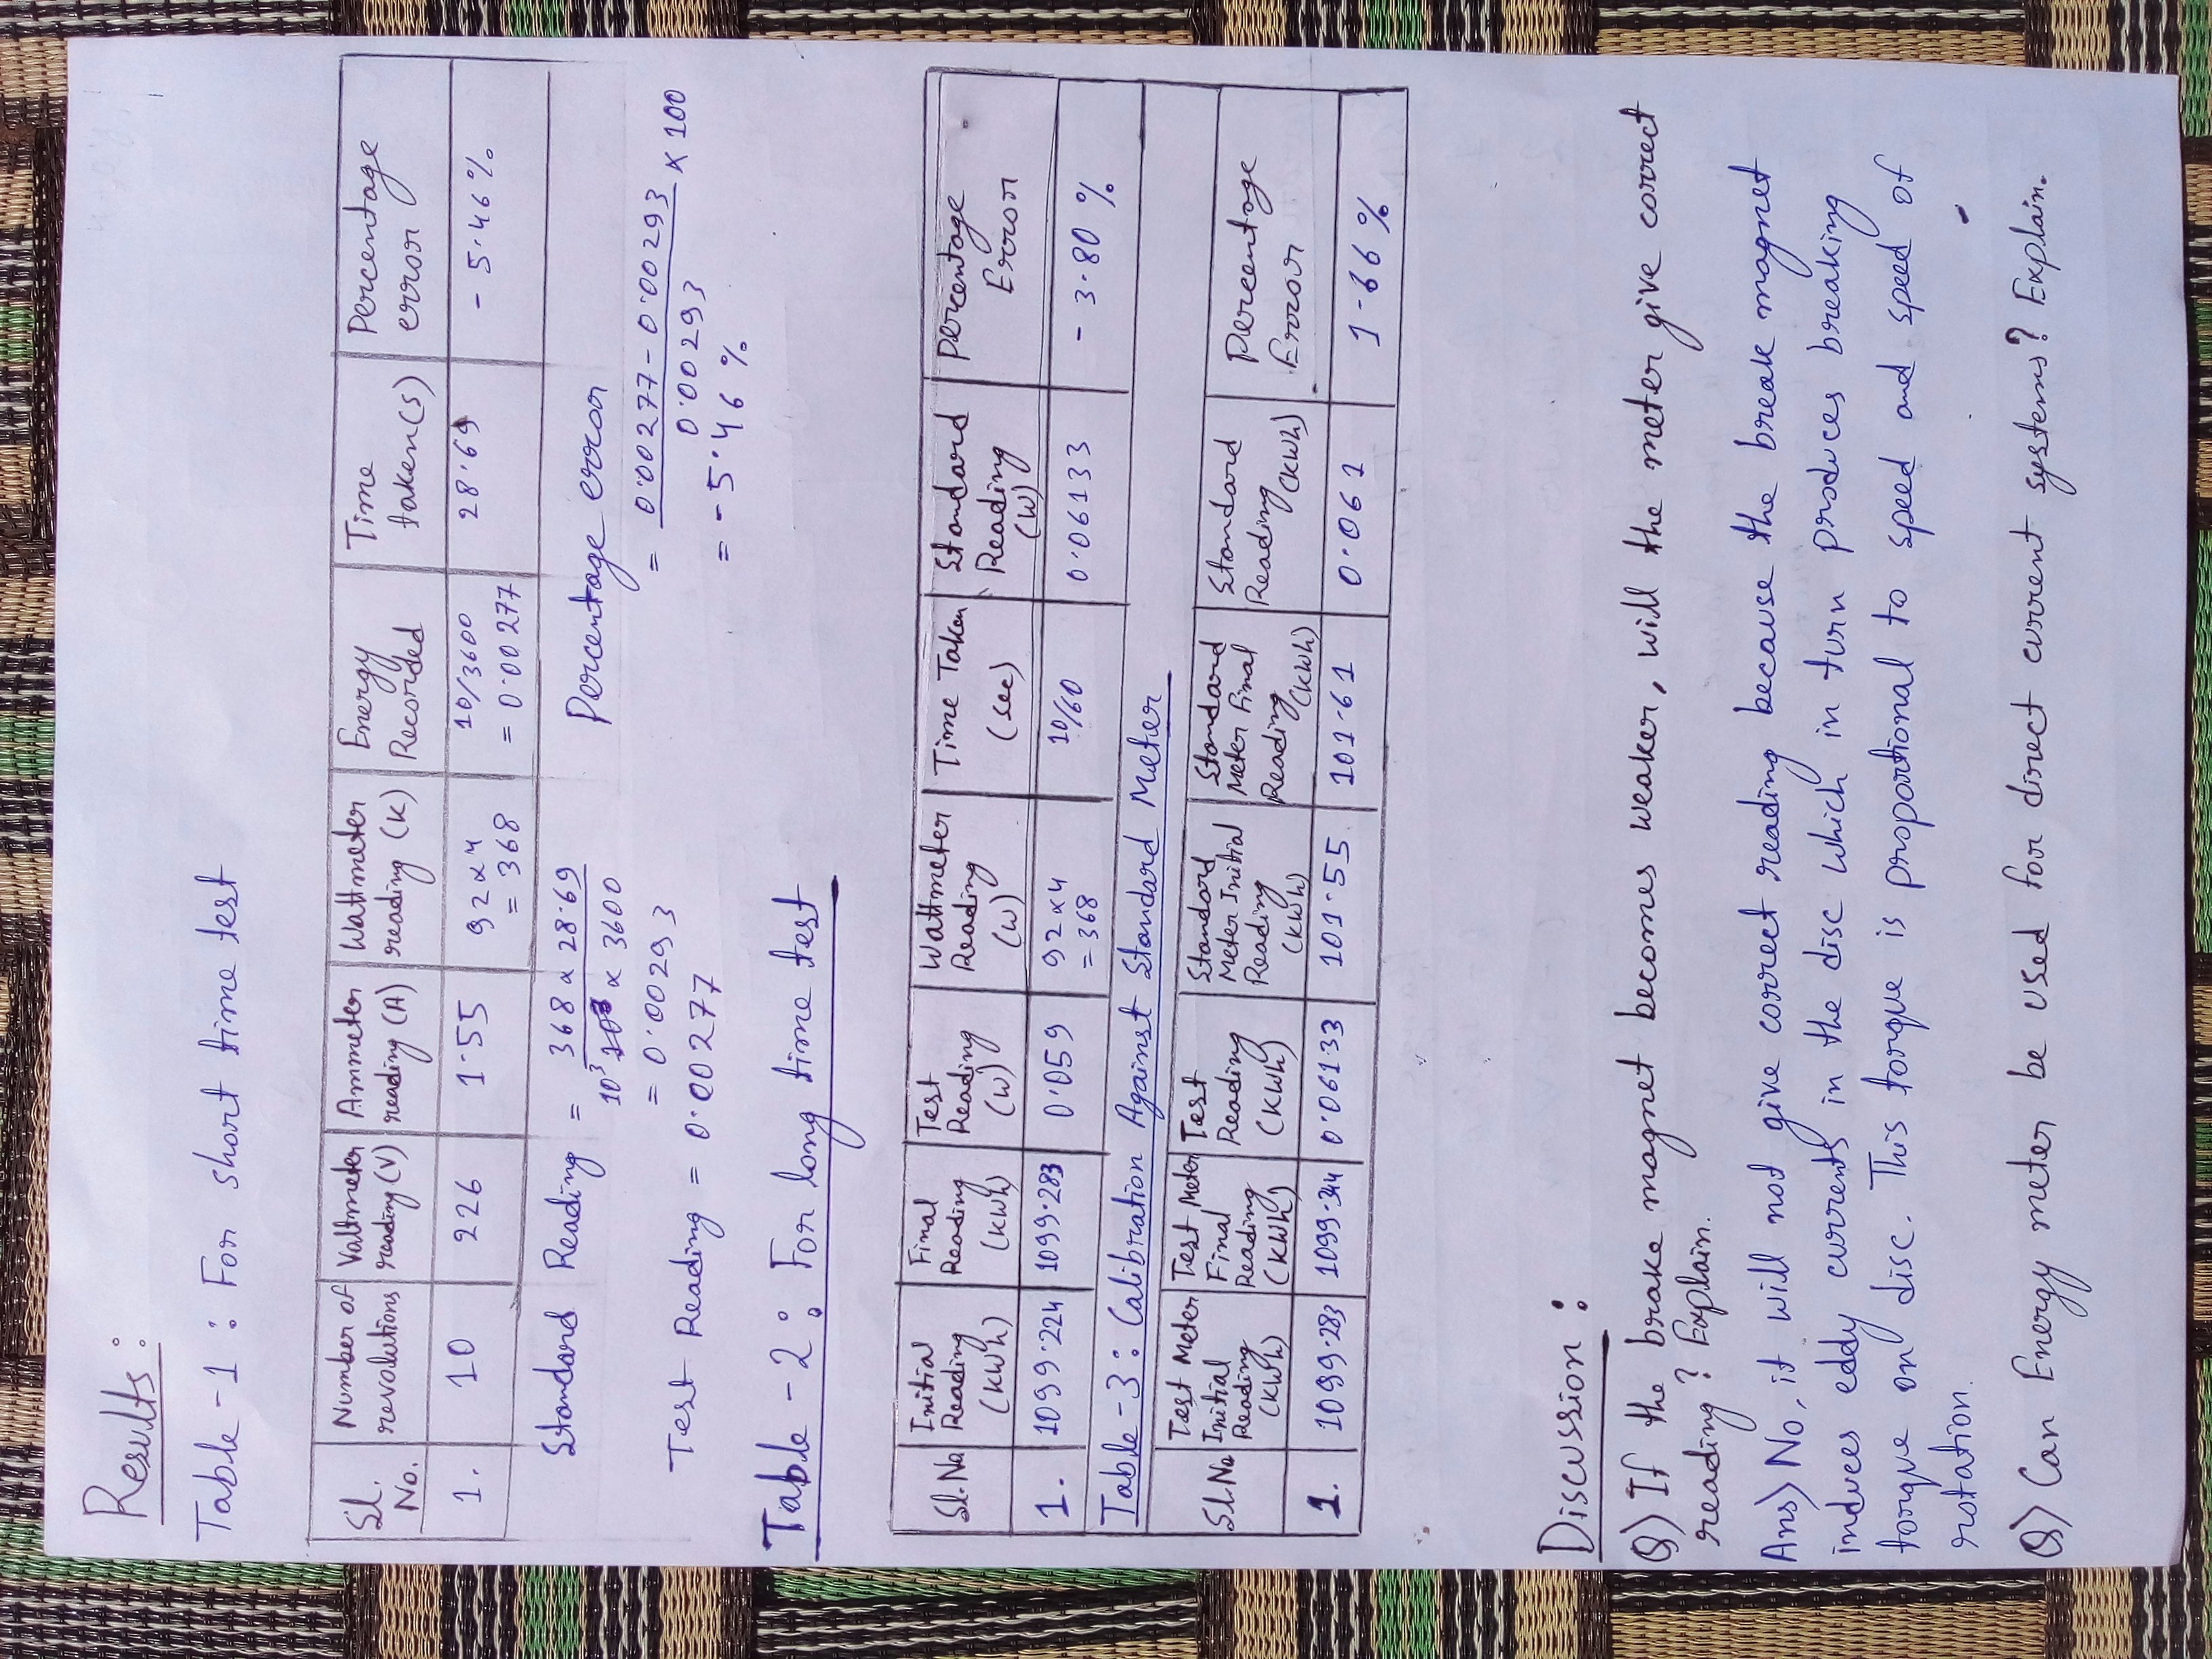 Results:
Table-1: For short time test
Sl. No. | Number of revolutions | Voltmeter reading (V) | Ammeter reading (A) | Wattmeter reading (K) | Energy Recorded | Time taken(s) | Percentage error
1. | 10 | 226 | 1.55 | 92x4 = 368 | 10/3600 = 0.00277 | 28.69 | - 5.46%
Standard Reading = 368 x 28.69 / 10³ x 3600
= 0.00293
Test Reading = 0.00277
Percentage error
= 0.00277 - 0.00293 / 0.00293 x 100
= - 5.46 %
Table-2: For long time test
Sl.No | Initial Reading (KWh) | Final Reading (KWh) | Test Reading (W) | Wattmeter Reading (W) | Time Taken (sec) | Standard Reading (W) | Percentage Error
1. | 1099.224 | 1099.283 | 0.059 | 92x4 = 368 | 10/60 | 0.06133 | - 3.80 %
Table-3: Calibration Against Standard Meter
Sl.No | Test Meter Initial Reading (KWh) | Test Meter Final Reading (KWh) | Test Reading (KWh) | Standard Meter Initial Reading (KWh) | Standard Meter Final Reading (KWh) | Standard Reading (KWh) | Percentage Error
1. | 1099.283 | 1099.344 | 0.06133 | 101.55 | 101.61 | 0.061 | 1.66%
Discussion:
Q) If the brake magnet becomes weaker, will the meter give correct
reading? Explain.
Ans) No, it will not give correct reading because the break magnet
induces eddy currents in the disc which in turn produces breaking
torque on disc. This torque is proportional to speed and speed of
rotation.
Q) Can Energy meter be used for direct current systems? Explain.